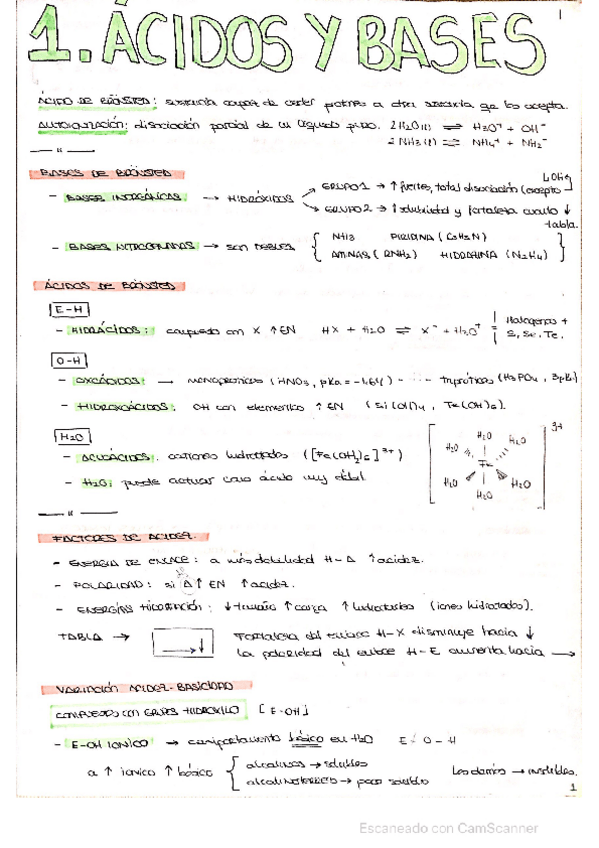 1. ÁCIDOS Y BASES
1
ÁCIDO DE BRÖNSTED: sustancia capaz de ceder protones a otra sustancia que los acepta.
AUTOIONIZACIÓN: disociación parcial de un líquido puro. 2H2O(l) ⇌ H3O+ + OH-
2NH3(l) ⇌ NH4+ + NH2-
BASES DE BRÖNSTED
- BASES INORGÁNICAS → HIDRÓXIDOS
GRUPO 1 → ↑ fuertes, total disociación (excepto LiOH)
GRUPO 2 → ↑ solubilidad y fortaleza cuanto ↓ tabla.
- BASES NITROGENADAS → SON DÉBILES
NH3 PIRIDINA (C5H5N)
AMINAS (RNH2) HIDRAZINA (N2H4)
ÁCIDOS DE BRÖNSTED
E-H
- HIDRÁCIDOS: compuesto con X ↑EN HX + H2O ⇌ X- + H3O+ Halógenos +
S, Se, Te.
O-H
- OXÁCIDOS: → monopróticos (HNO3, pKa = -1.64) - - - - tripróticos (H3PO4, 3pKa)
- HIDROXOÁCIDOS: OH con elementos ↑ EN (Si(OH)4, Te(OH)6).
H2O
- ACUOÁCIDOS: cationes hidratados ([Fe(OH2)6]3+)
- H2O: puede actuar como ácido muy débil
H2O
H2O
H2O
Fe
H2O
H2O
H2O
3+
FACTORES DE ACIDEZ
- ENERGÍA DE ENLACE: a más debilidad H-A ↑acidez.
- POLARIDAD: si A↑ EN ↑acidez.
- ENERGÍAS HIDRATACIÓN: ↓tamaño ↑carga ↑ (iones hidratados).
TABLA → Fortaleza del enlace H-X disminuye hacia ↓
La polaridad del enlace H-E aumenta hacia →
VARIACIÓN ACIDEZ-BASICIDAD
COMPUESTOS CON GRUPOS HIDROXILO [E-OH]
- E-OH IONICO → comportamiento básico en H2O E-O-H
a ↑ iónico ↑ básico
alcalinos → solubles
alcalinotérreos → poco solubles
Los demás → insolubles.
1
Escaneado con CamScanner